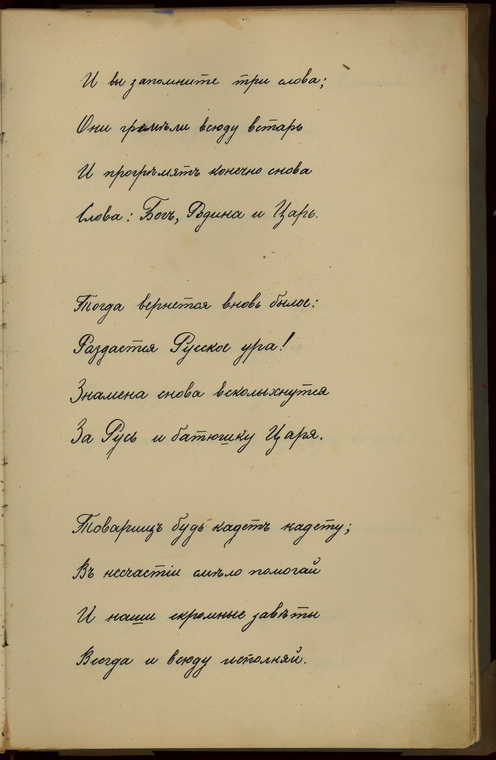 И вы запомните три слова;
Они гремѣли всюду встарь
И прогремятъ конечно снова
Слова: Богъ, Родина и Царь.
Тогда вернется вновь былое:
Раздастся Русское ура!
Знамена снова всколыхнутся
За Русь и батюшку Царя.
Товарищъ будь кадетъ кадету;
Въ несчастіи смѣло помогай
И наши скромные завѣты
Всегда и всюду исполняй.